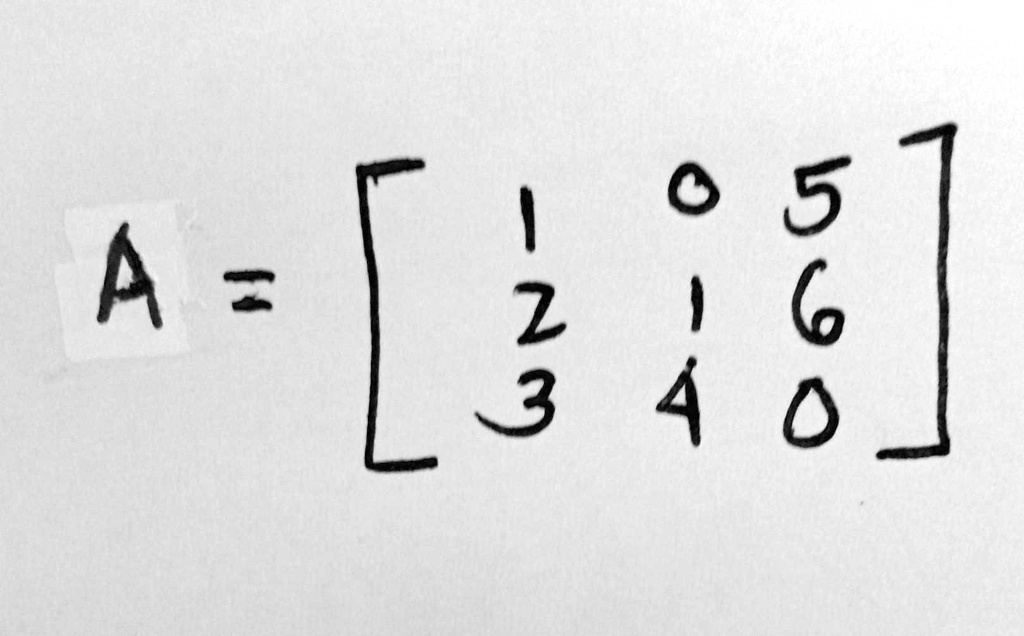 1 0 5
A = [ 2 1 6 ]
3 4 0